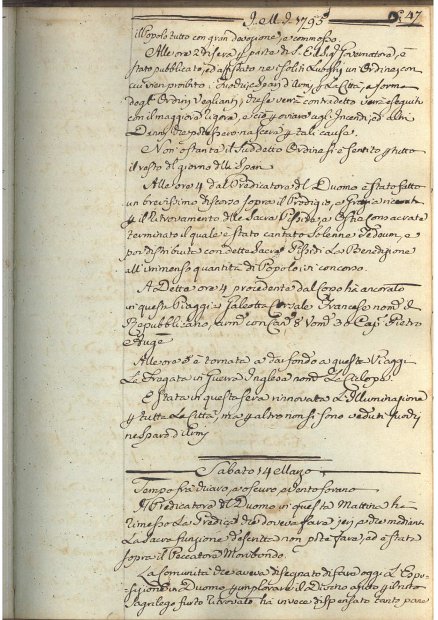 J. M. J. 1795 47
il Popolo tutto con gran devozione, e commosso.
Alle ore 2 di sera p parte di S. E. il Sig.r Governatore, è
stato pubblicato, ed affissato ne i soliti Luoghi un Ordine, con
cui vien proibito spari d'armi p la Città, a forma
degl'Ordini Veglianti, che se verrà contradetto verrà eseguito
con il maggior rigore, e ciò p ovviare agl'Incendj, ed altri
Danni che potessero nascere p tali causa.
Non ostante il suddetto Ordine si è sentito p tutto
il resto del giorno delli spari.
Alle ore 4 dal Predicatore del Duomo è stato fatto
un brevissimo discorso sopra il Prodigio, e grazia ricevuta
p il Ritrovamento delle Sacre Pissidi, e Ostie Consacrate
terminato il quale è stato cantato Solenne Tedeum, e
poi distribuita con dette Sacre Pissidi La Benedizione
all'immensa quantità di Popolo ivi concorso.
A Dette ore 4 procedente dal Capo ha ancorato
in questa Piaggia Galeotta Corsale Francese nom.a Il
Republiccano, arm. con Can. 8 Uom. 30 Cap. Pietro
Augè
Alle ore 8 è tornata a dar fondo a queste Piaggie
La Fregata in Guerra Inglese nom.a La Ciclope
È stata in questa sera rinnovata L'Illuminazione
p tutta La Città, ma p altro non si sono veduti fuochi
ne spari d'armi
Sabato 14 Marzo
Tempo frà chiaro, e oscuro, e vento forano
Il Predicatore del Duomo in questa Mattina ha
rimesso La Predica che doveva fare jeri, e che mediante
La sacra funzione descritta non potè fare, ed è stata
sopra il Peccatore Moribondo.
La Comunità che aveva disegnato di fare oggi L'Espo-
sizione in Duomo p implorare il Divino ajuto p il noto
Sagrilego furto ritrovato, ha invece dispensato tanto pane